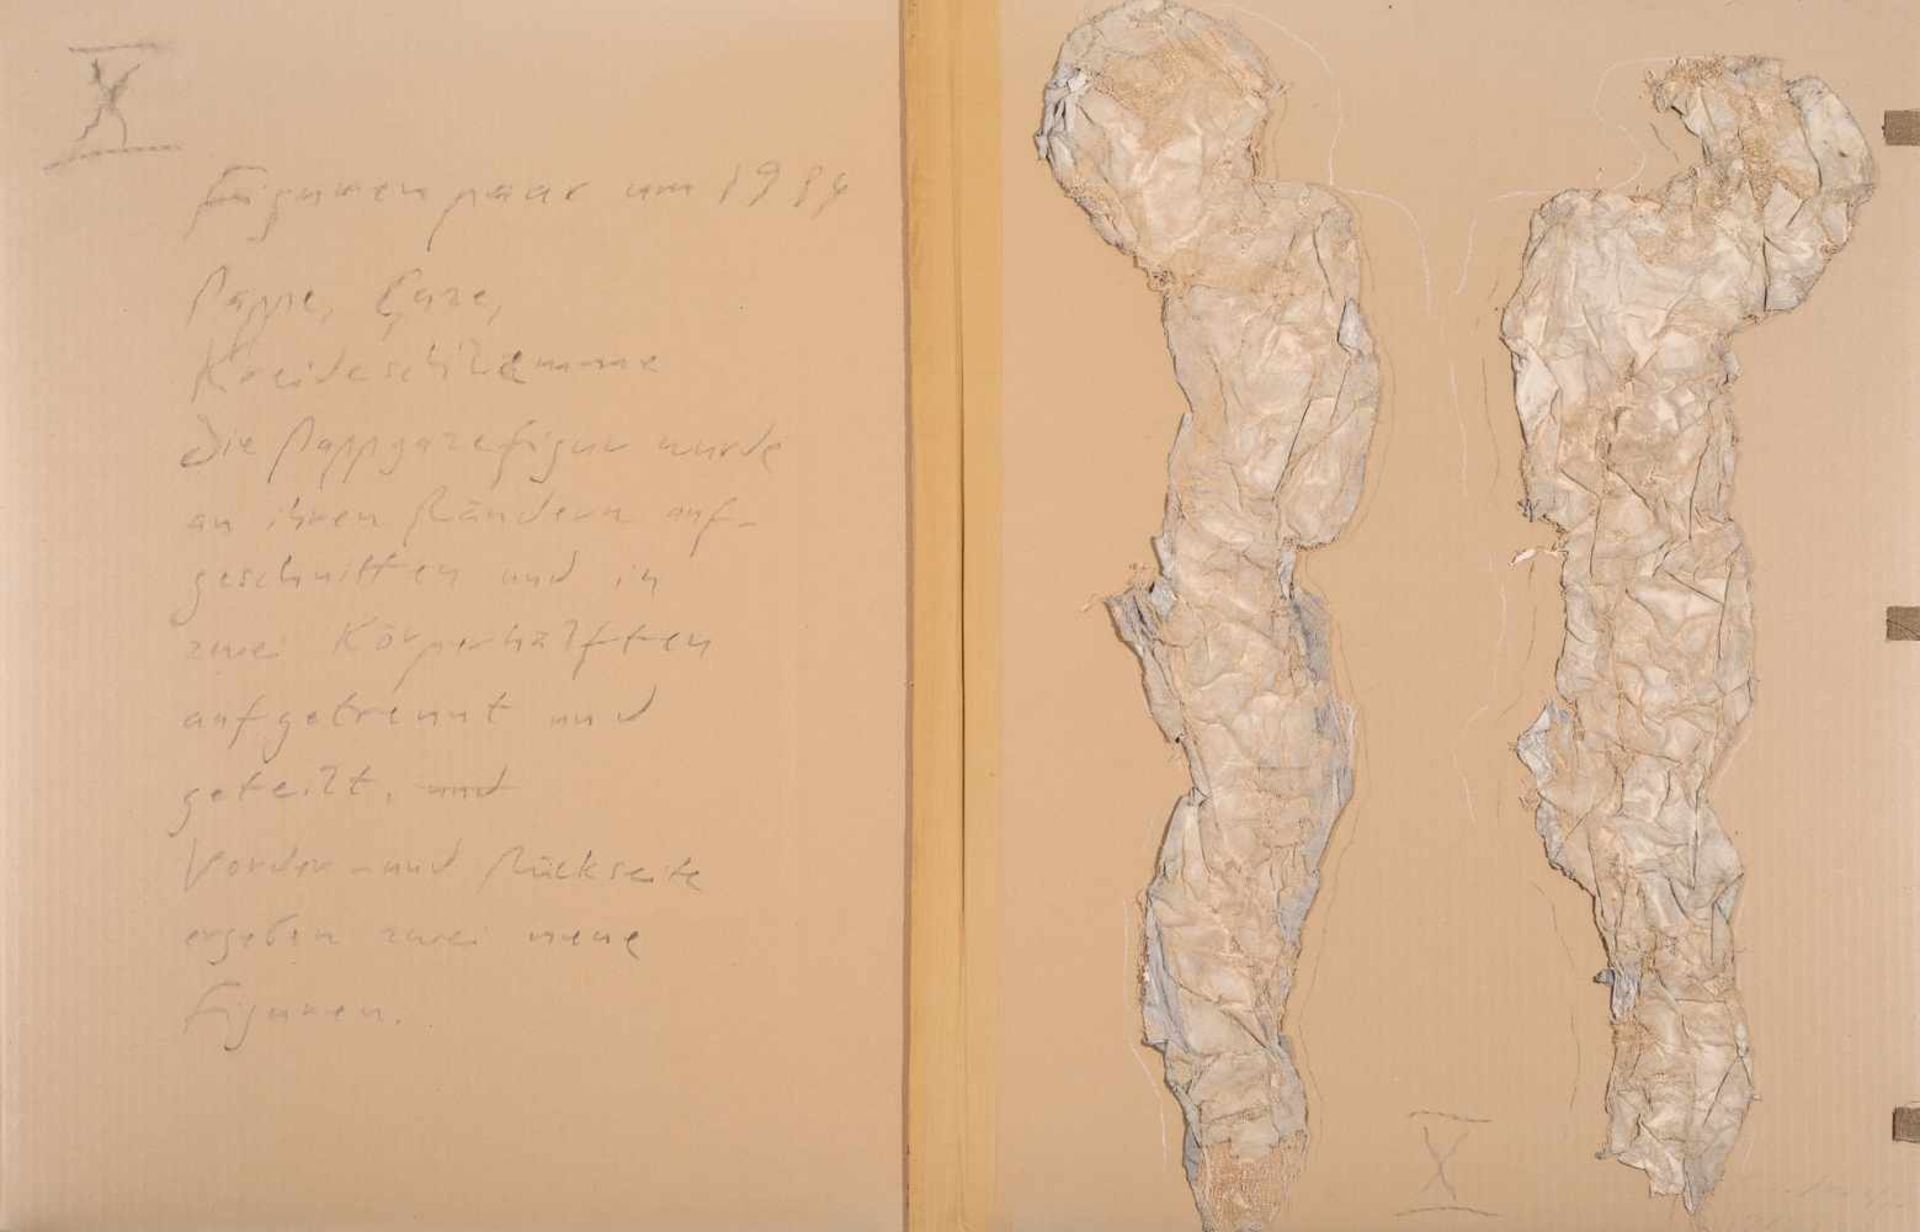 X
Figurenpaar um 1984
Pappe, Gaze,
Kreideschlämme
Die Pappgazefigur wurde
an ihren Rändern auf-
geschnitten und in
zwei Körperhälften
aufgetrennt und
geteilt. und
Vorder- und Rückseite
ergeben zwei neue
Figuren.
X